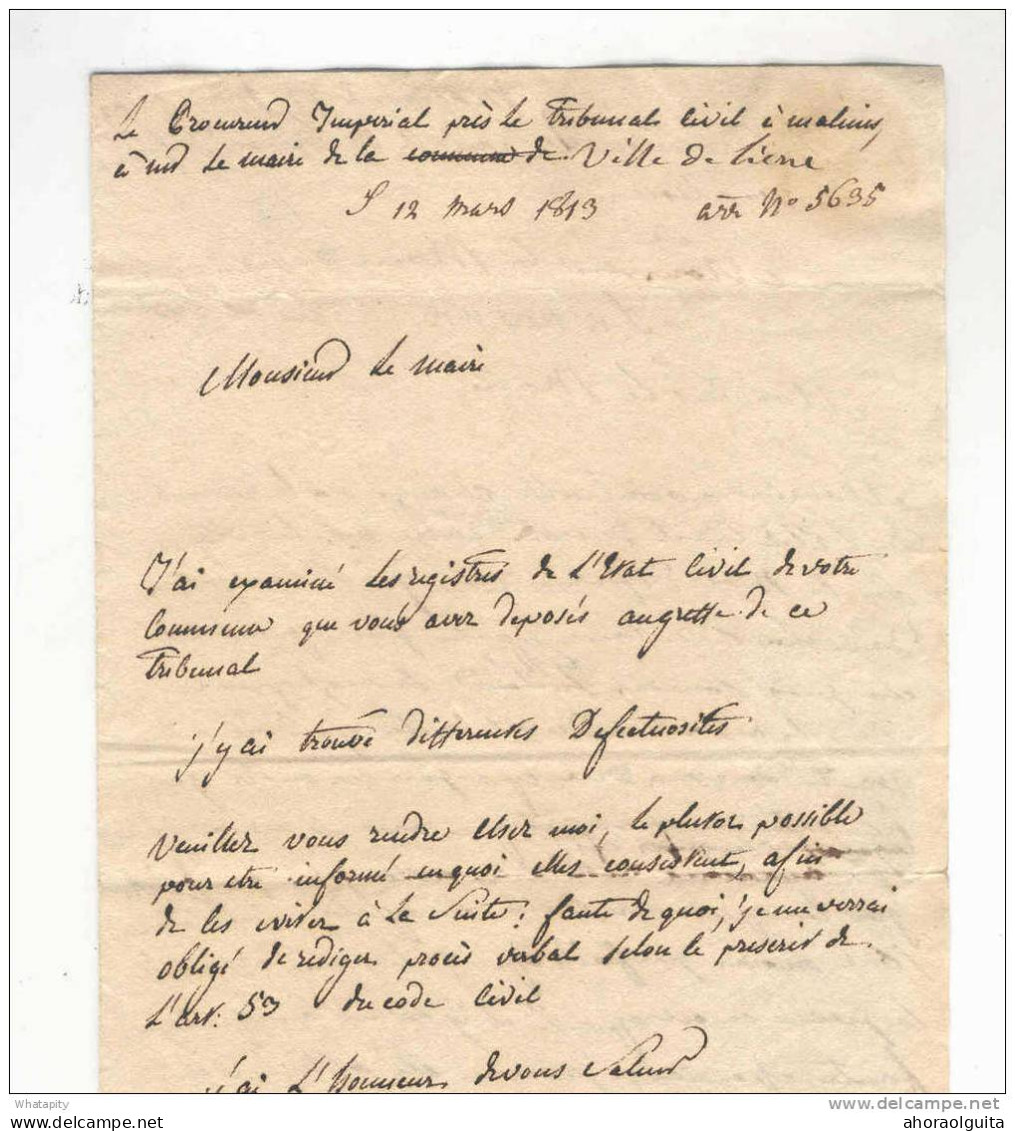 Le Procureur Imperial près le Tribunal Civil à malines
à mr Le maire de la commune de Ville de Lierre
12 mars 1813 arr No 5635
Monsieur Le maire
J'ai examiné les registres de L'Etat Civil de votre
Commune que vous avez deposés au greffe de ce
Tribunal
j'y ai trouvé differentes Defectuosites
Veuillez vous rendre chez moi, le plutot possible
pour etre informé en quoi elles consistent, afin
de les eviter à la suite: faute de quoi, je me verrai
obligé de rediger procès verbal selon le prescrit de
L'art: 53 du code Civil
j'ai L'honneur de vous saluer
Whatapity
delcampe.net
ahoraolguita